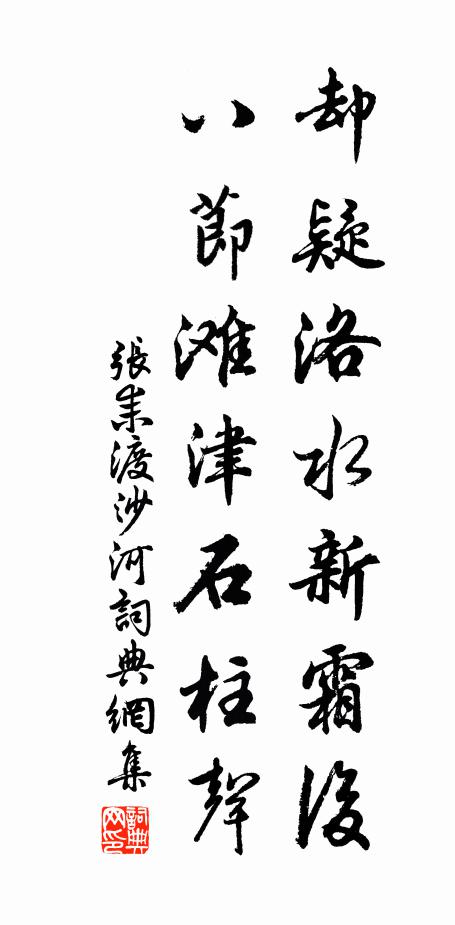 却疑洛水新霜後
八節滩津石柱聲
張耒渡沙河詞典網集
詞典网印